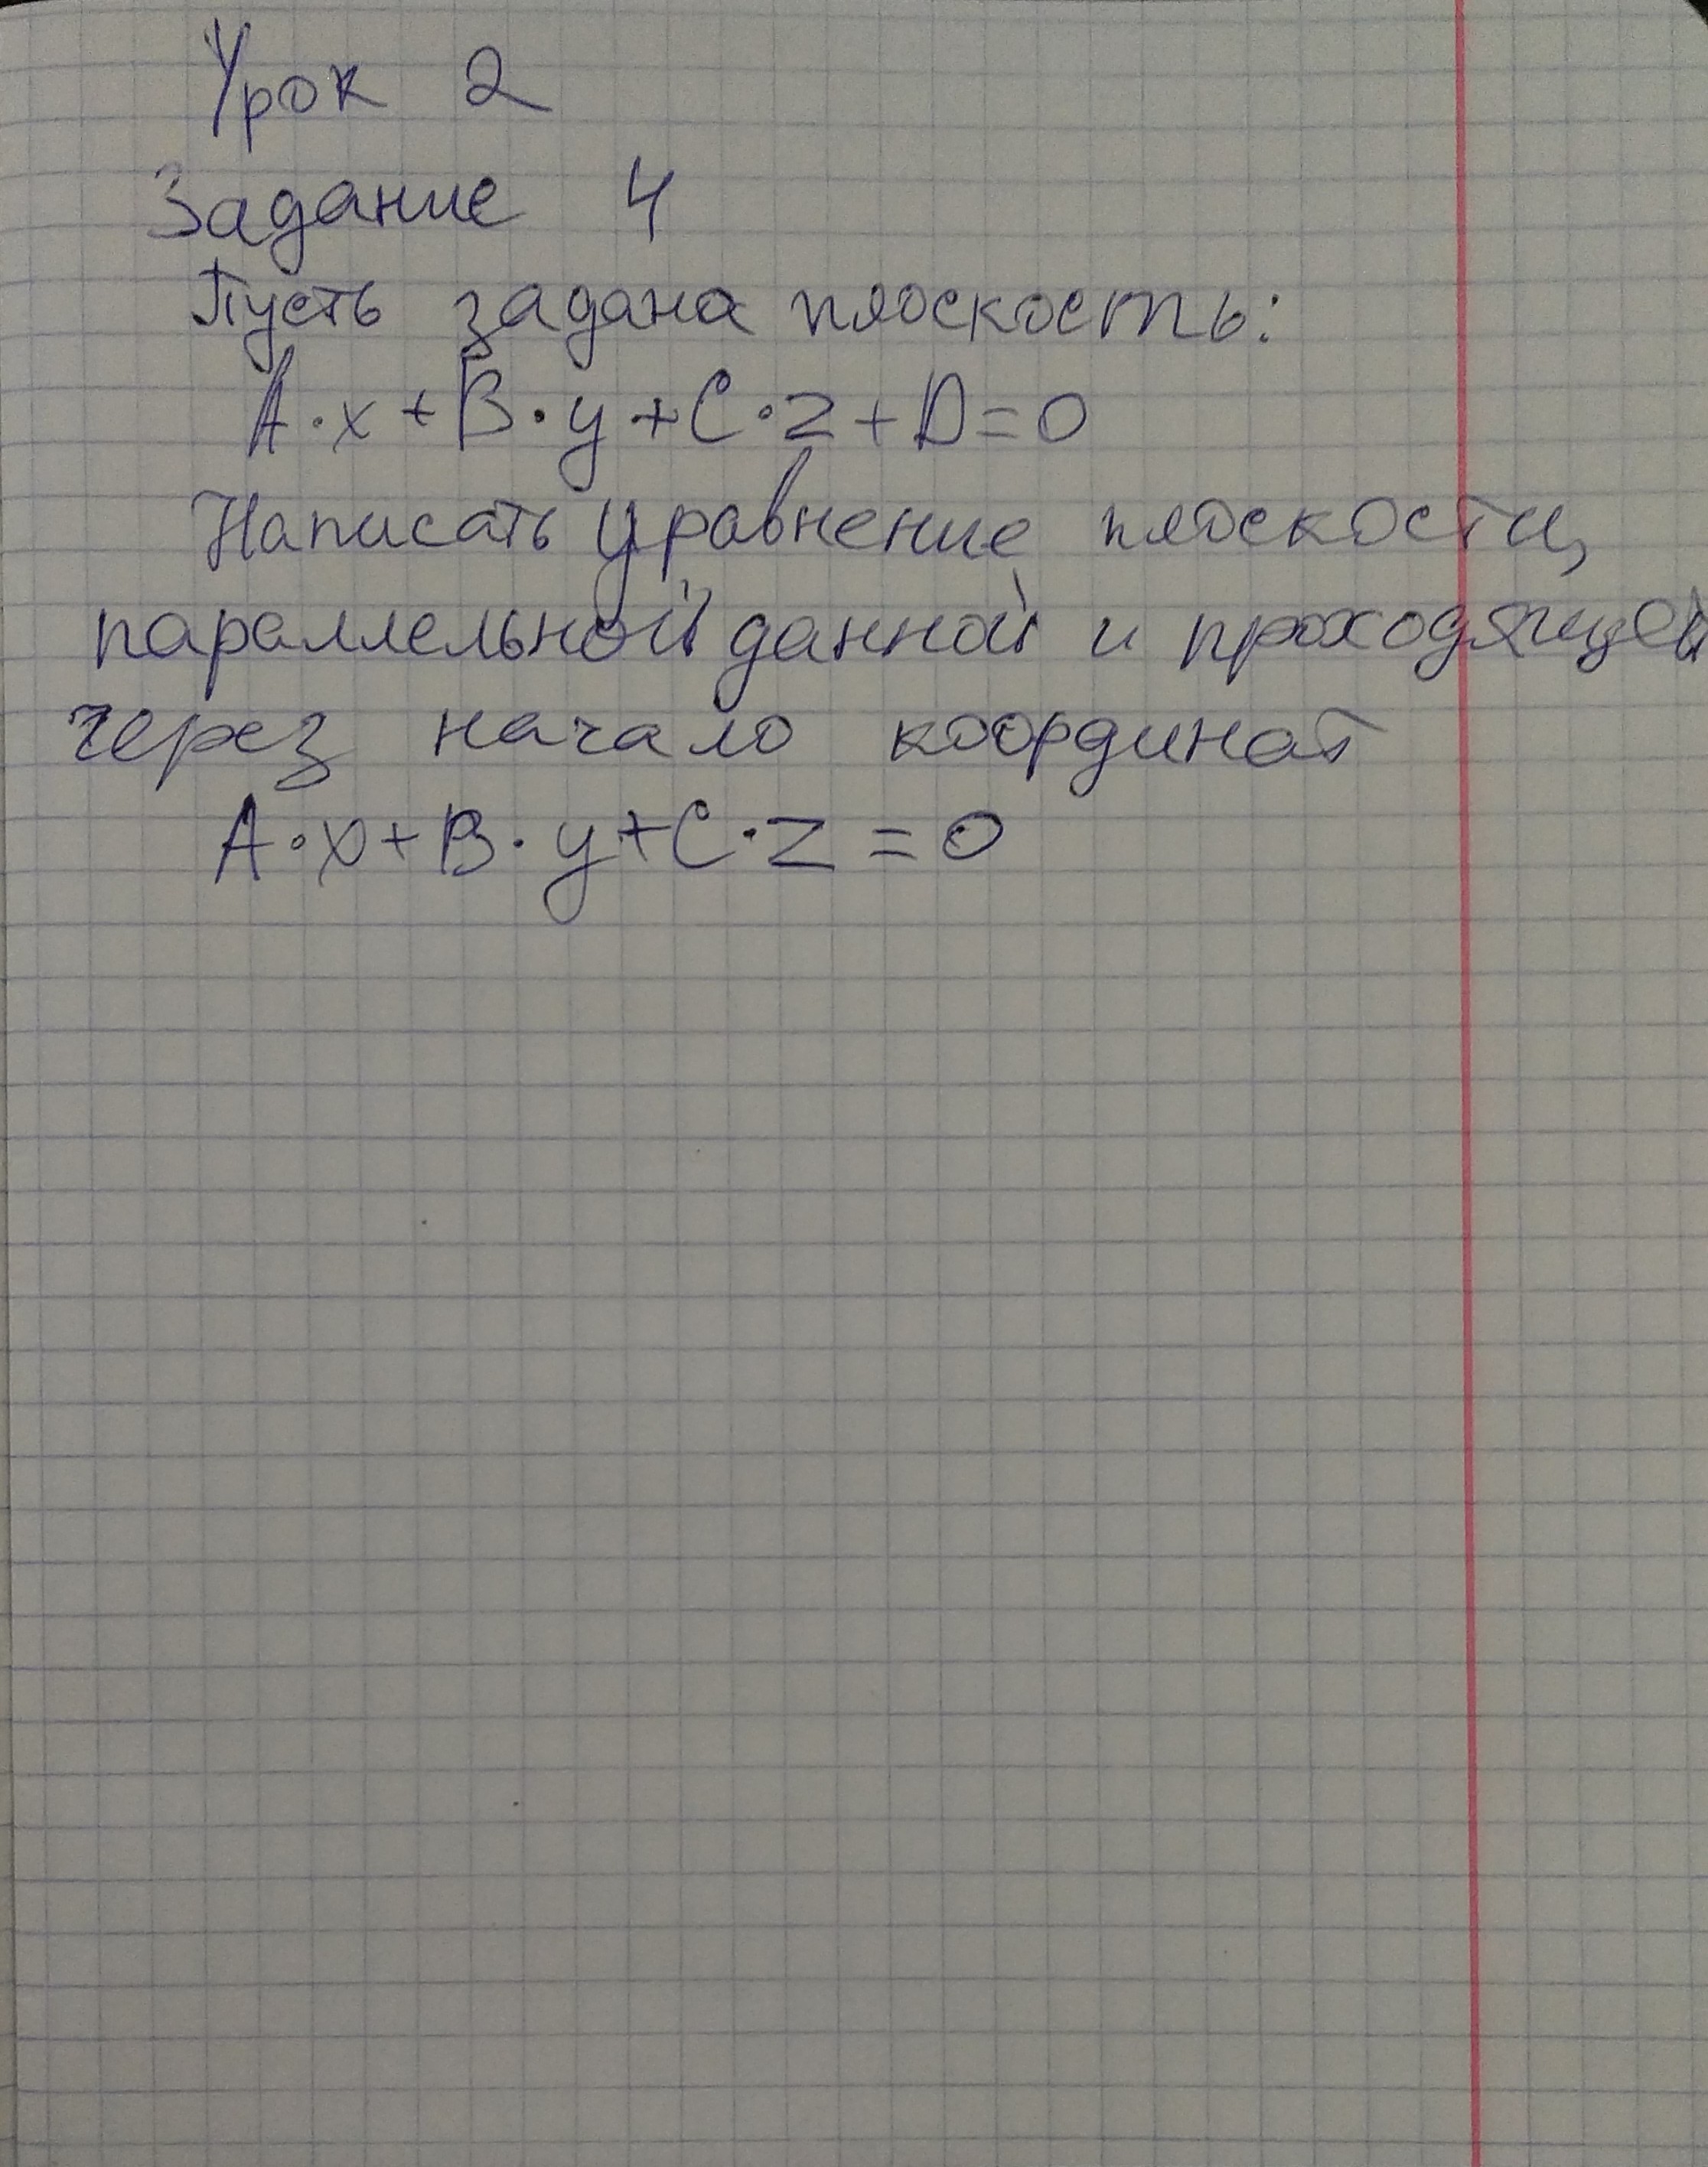 Урок 2
Задание 4
Пусть задана плоскость:
A·x+B·y+C·z+D=0
Написать уравнение плоскости,
параллельной данной и проходящей
через начало координат
A·x+B·y+C·z=0